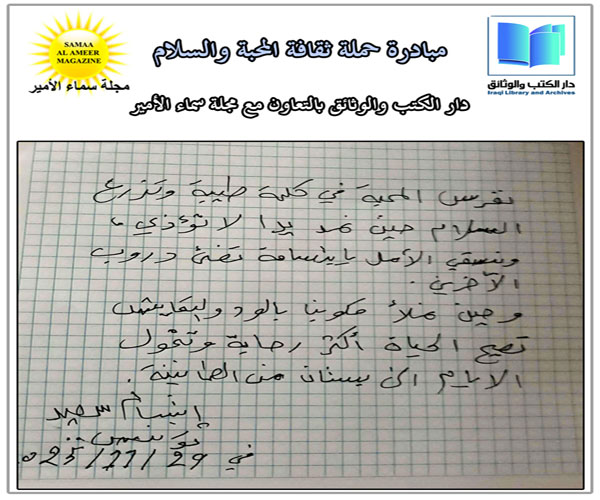 SAMAA
AL AMEER
MAGAZINE
مجلة سماء الأمير
مبادرة حملة ثقافة المحبة والسلام
دار الكتب والوثائق
Iraqi Library and Archives
دار الكتب والوثائق بالتعاون مع مجلة سماء الأمير
نغرس المحبة في كلمة طيبة ونزرع
السلام حين نمد يدا لا تؤذي ،
ونسقي الأمل بابتسامة تضئ دروب
الآخرين .
وحين نملأ قلوبنا بالود والتعايش
تصبح الحياة أكثر رحابة وتتحول
الايام الى بستان من الطمأنينة .
ابتسام سعيد
تونس
في 29/11/025